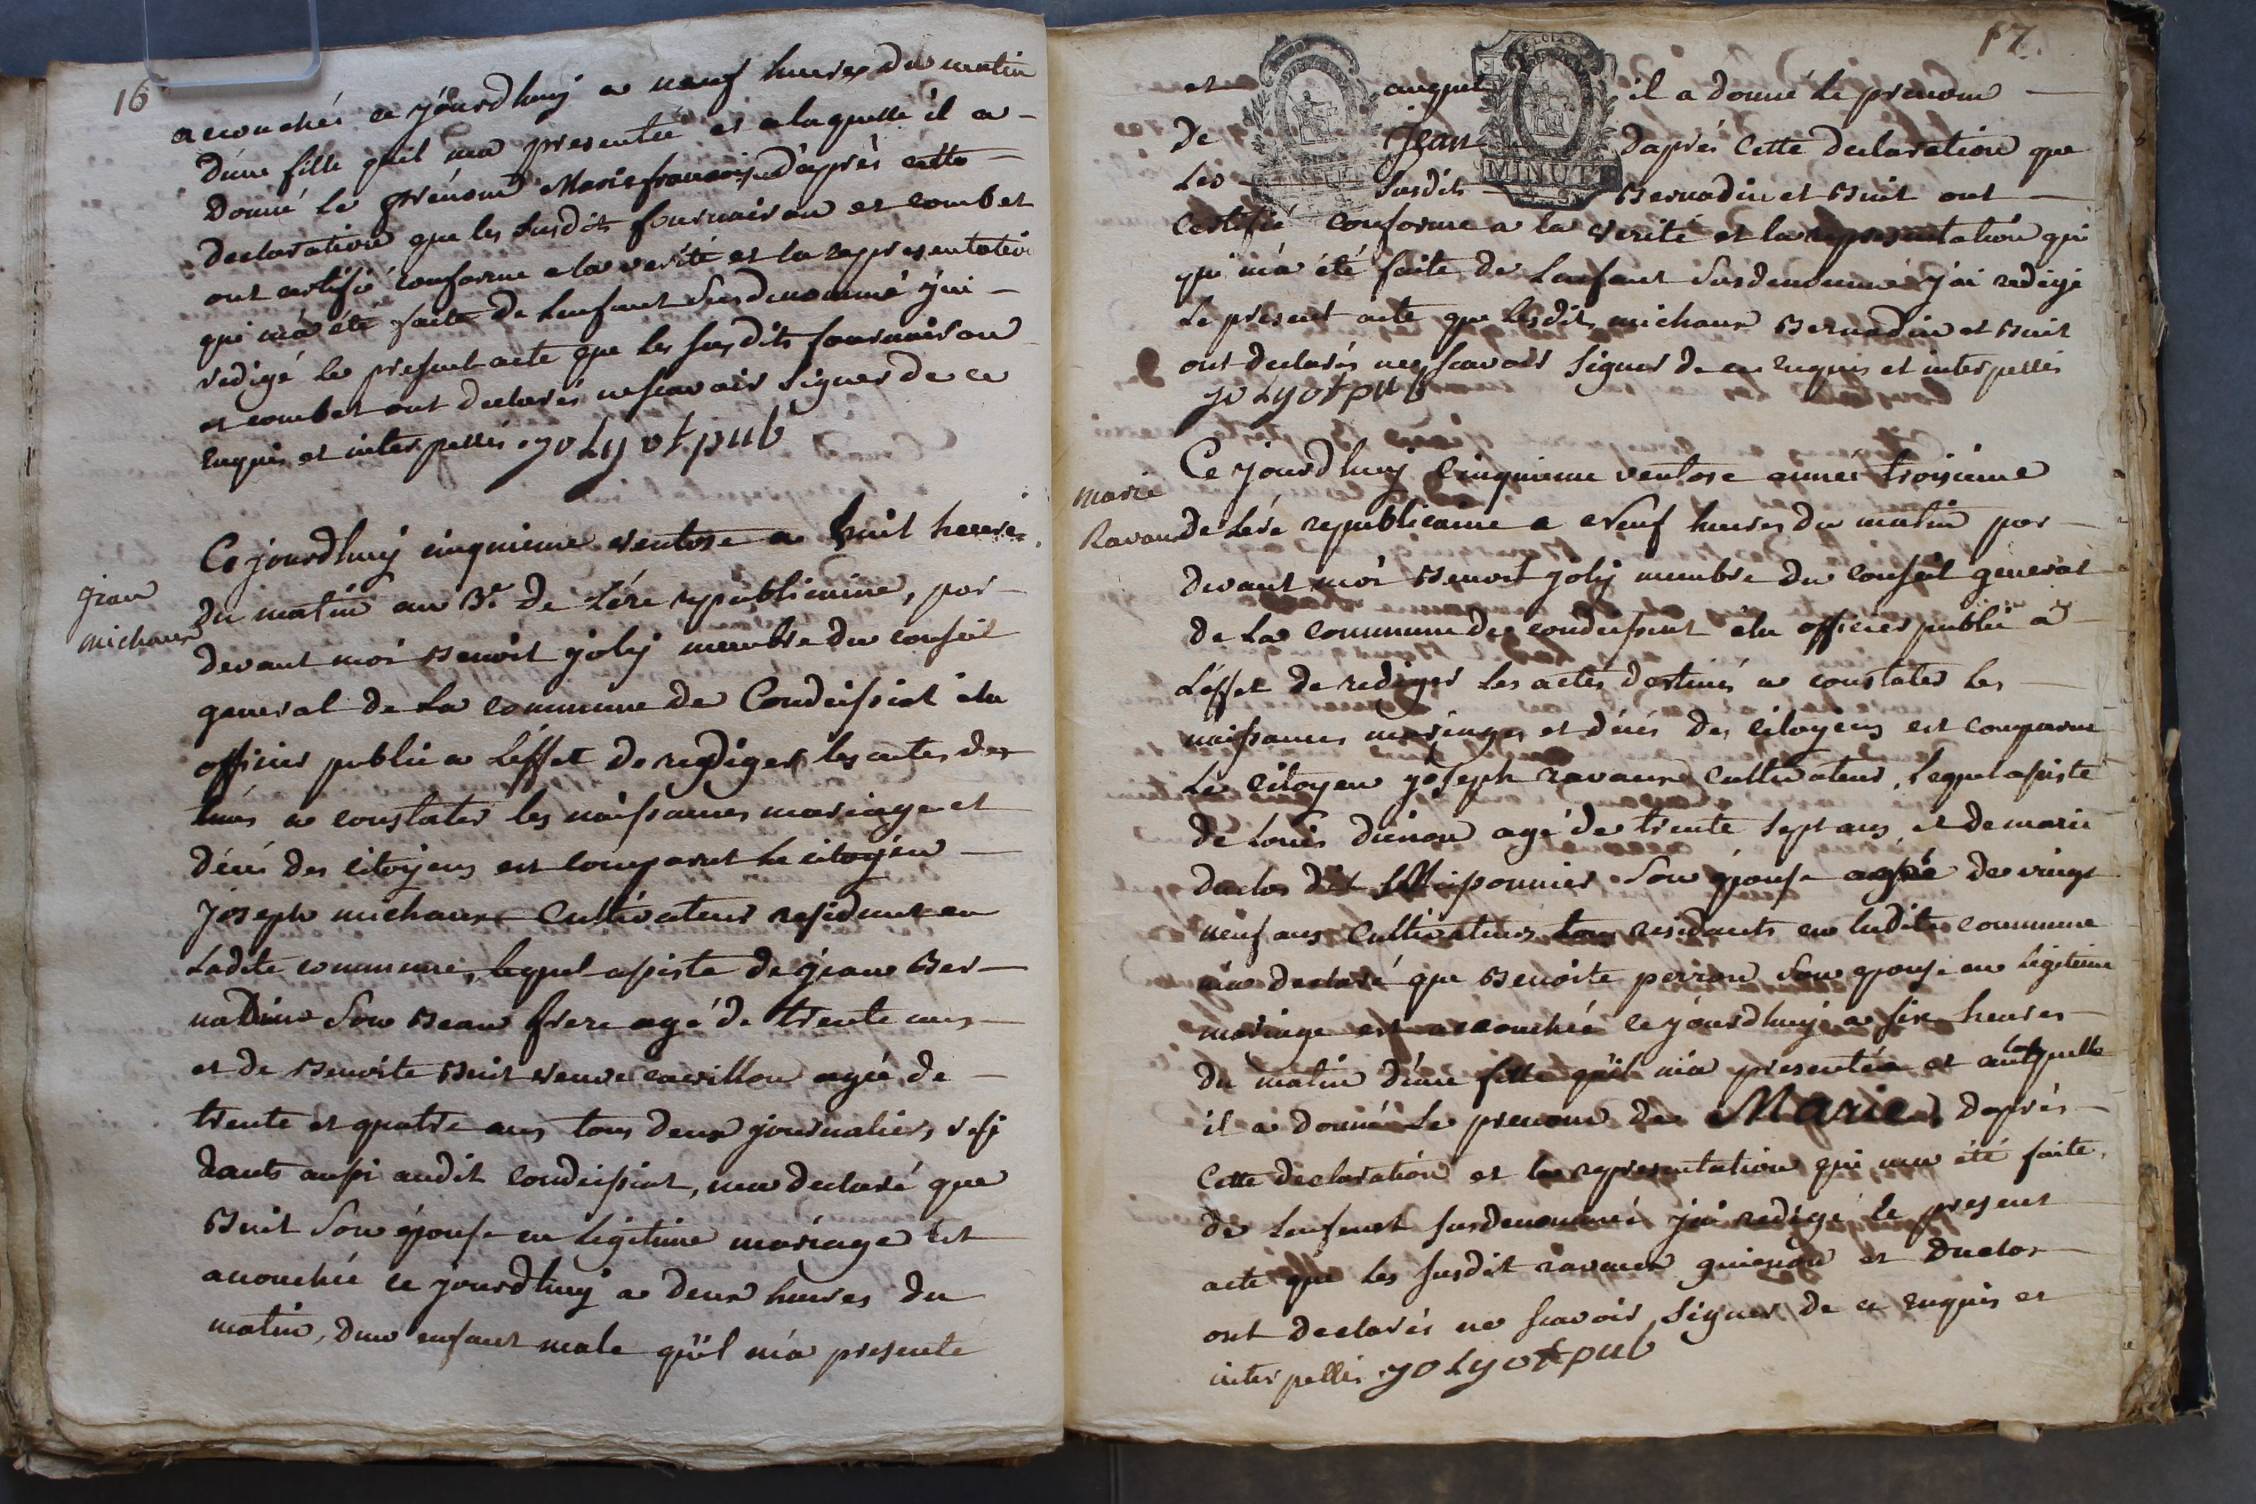 16
accouchée ce jourdhuy a neuf heures du matin
d'une fille quil ma presentée et a laquelle il a
donné le prénom Marie francoise d'après cette
declaration que les susdits fournairon et combet
ont certifié conforme a la verité et la representation
qui m'a été faite de Lenfant susdenommé j'ai
redigé le present acte que les susdits fournairon
et combet ont declarés ne scavoir signer de ce
Enquis et interpellés joly of pub
jean
michaux
Ce jourdhuy cinquieme ventose a huit heures
du matin an 3e. de L'ére republicaine, par
devant moi Benoit joly membre du conseil
general de La commune de Condeissiat élu
officier public a L'éffet de rediger les actes des
tinés a constater les naissances mariage et
décés des citoyens est comparut le citoyen
joseph michaux Cultivateur residant en
Ladite commune, lequel assisté de jean Ber
nadin son Beau frere agé de trente ans
et de Benoite Buit veuve cavillon agée de
trente et quatre ans tous deux journaliers resi
dants aussi audit condeissiat, ma declaré que
Buit son épouse en Legitime mariage est
accouchée ce jourdhuy a deux heures du
matin, dun enfant male qu'il m'a presenté
17.
et auquel il a donné le prenom
de Jean d'après Cette declaration que
Les susdits Bernadin et Buit ont
MINUTE
certifié conforme a la verité et la representation qui
qui m'a été faite de Lenfant susdenommé j'ai redigé
Le present acte que lesdits michaux Bernadin et Buit
ont declarés ne scavoir signer de ce Enquis et interpellés
joly of pub
marie
Ravaux
Ce jourdhuy Cinquieme ventose année troisieme
de Lére republicaine a Neuf heures du matin par
devant moi Benoit joly membre du conseil general
de La commune de condeissiat élu officier public à
L'éffet de rediger Les actes destinés a constater les
naissances mariages et décés des citoyens est comparu
Le Citoyen joseph ravaux Cultivateur, lequel assisté
de Louis agé de trente sept ans, et de marie
duclos son épouse agée de vingt
neuf ans Cultivateurs tous residants en ladite commune
m'a declaré que Benoite perron son epouse en Legitime
mariage est accouchée ce jourdhuy a six heures
du matin d'une fille qu'il m'a presentée et a laquelle
il a donné Le prenom de Marie, d'après
Cette declaration et la representation qui ma été faite
de Lenfant susdenommé j'ai redigé le present
acte que les susdit ravaux guienon et Duclos
ont declarés ne scavoir signer de ce enquis et
interpellés joly of pub